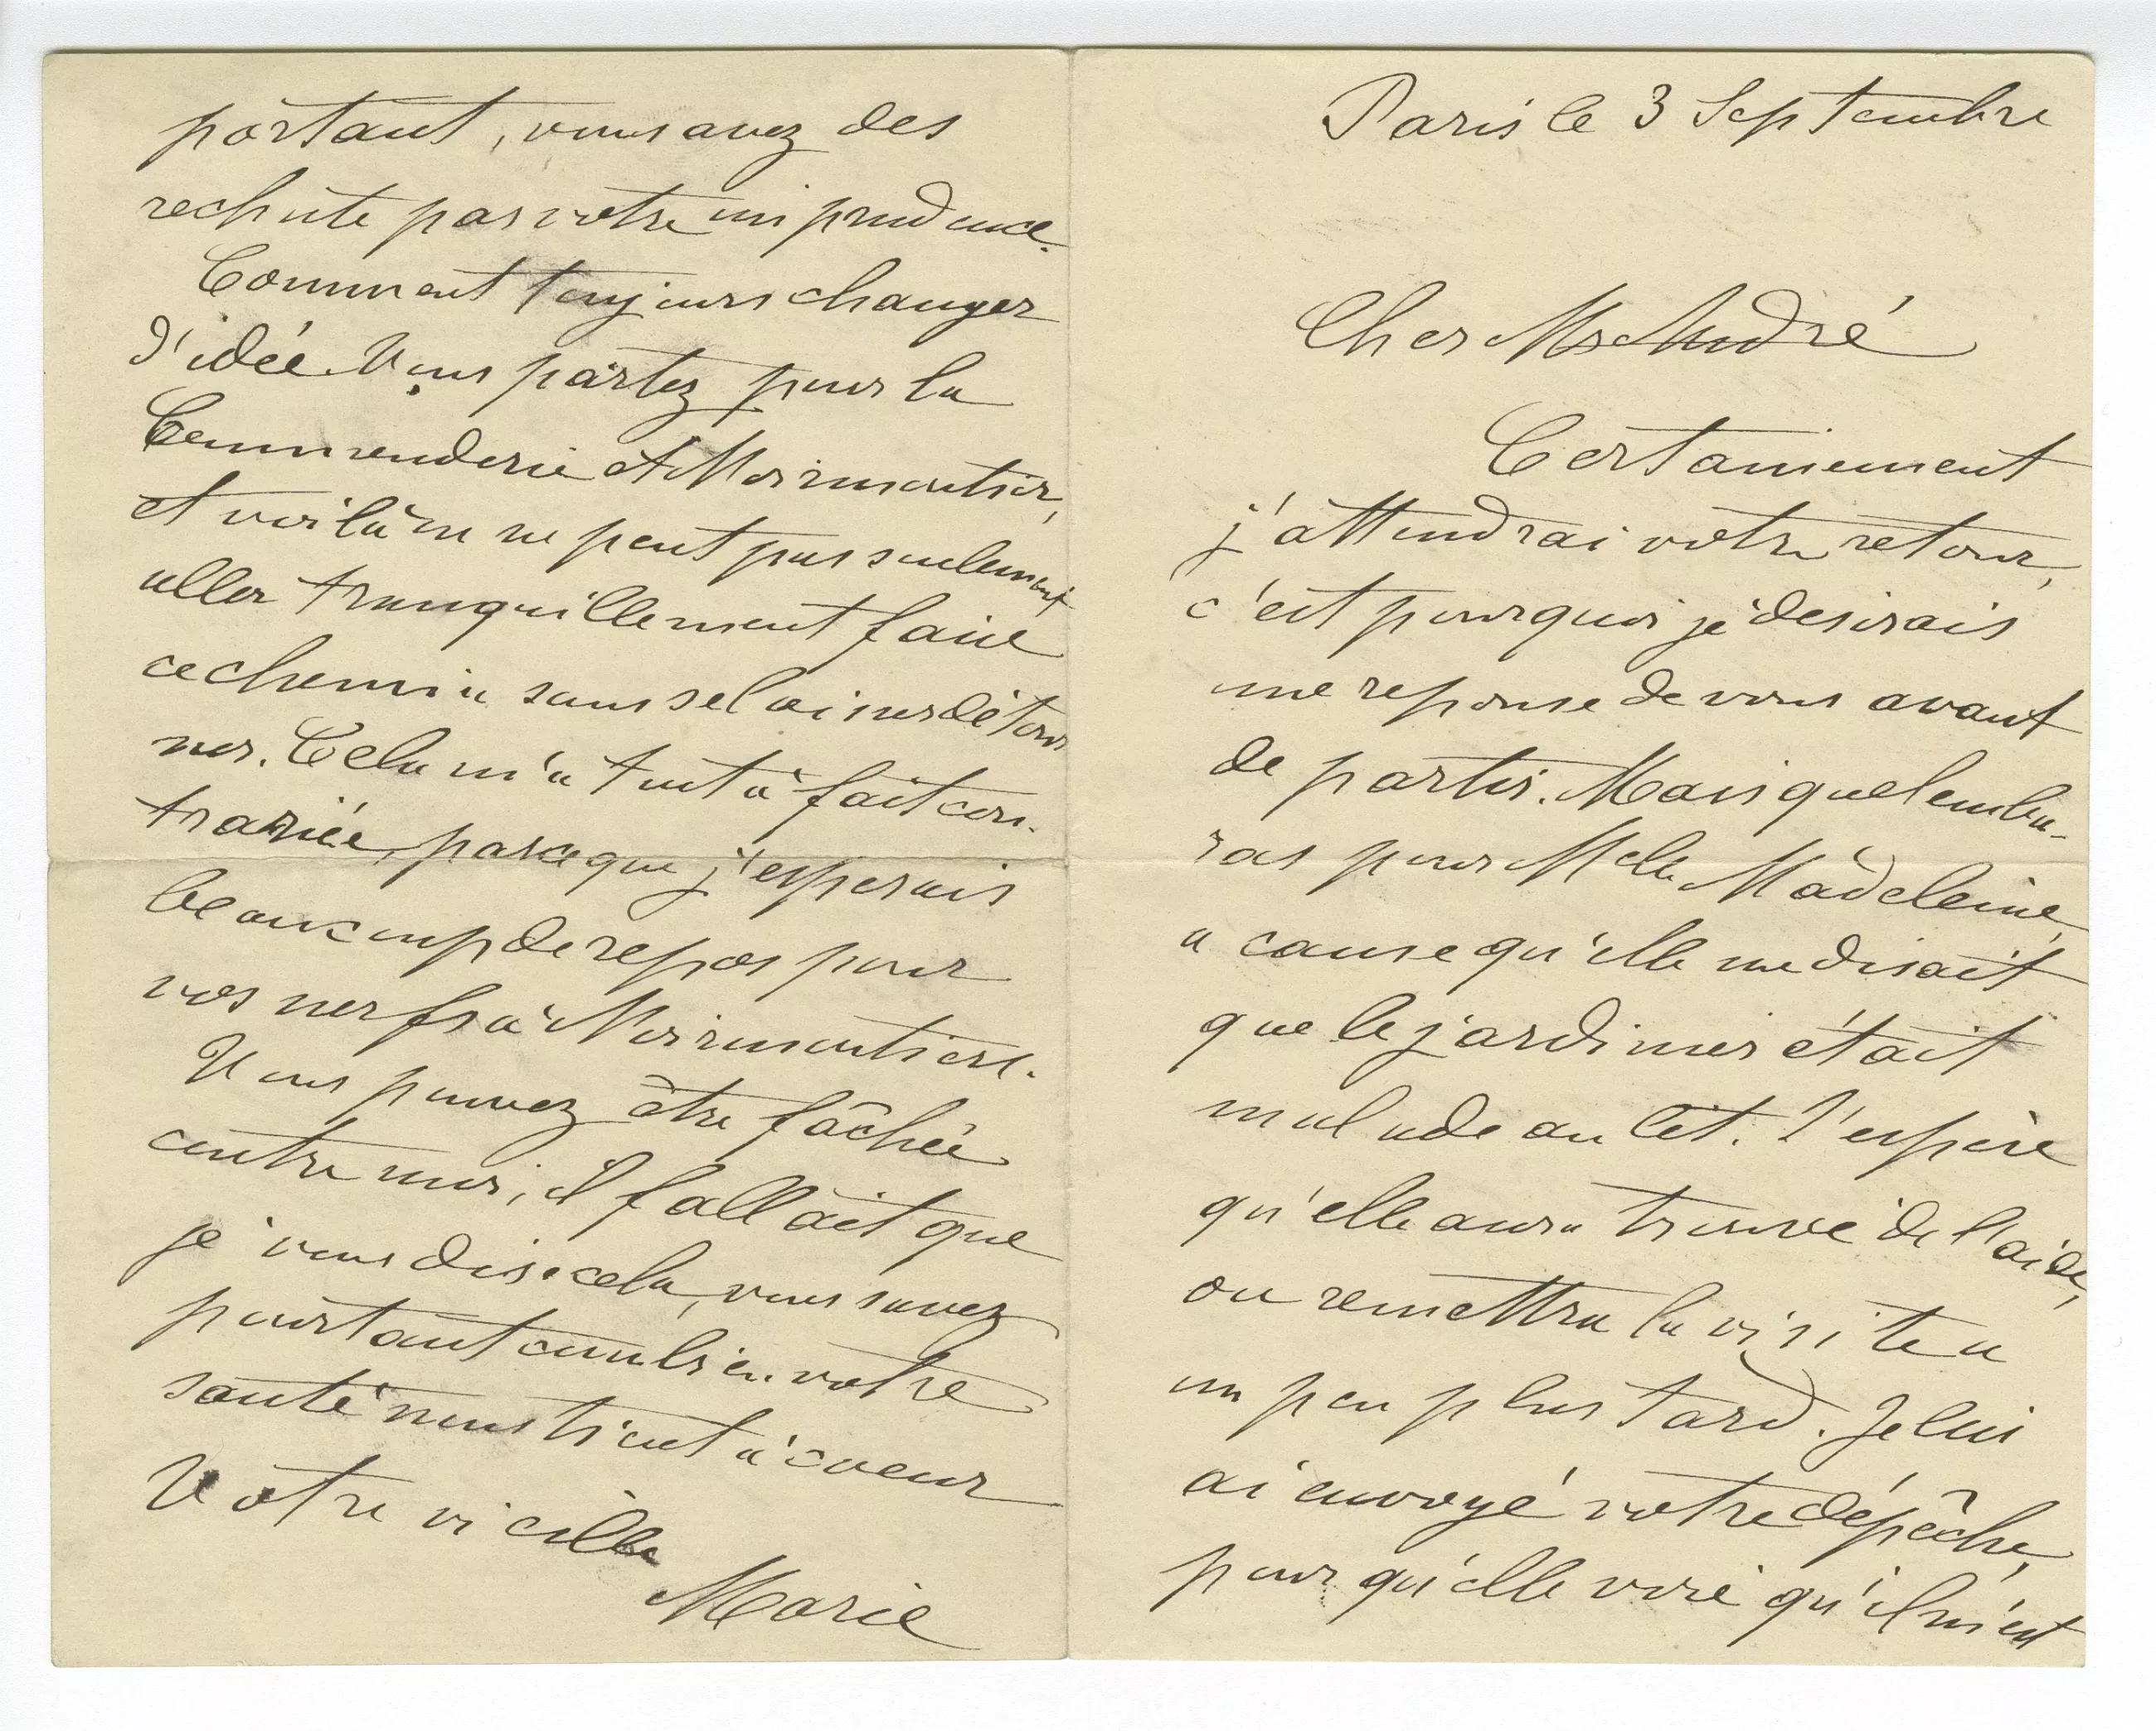 Paris le 3 Septembre
Cher Mr André
Certainement
j'attendrai votre retour,
c'est pourquoi je desirais
une reponse de vous avant
de partir. Mais quel emba-
ras pour Melle Madeleine,
a cause qu'elle me disait
que le jardinier était
malade au lit. J'espère
qu'elle aura trouvé de l'aide,
ou remettra la visite a
un peu plus tard. Je lui
ai envoyé votre dépêche,
pour qu'elle voie qu'il n'est
portant, vous avez des
rechute par votre imprudence.
Comment toujours changer
d'idée. Vous partez pour la
Commenderie et Noirmoutier,
et voilà on ne peut pas seulement
aller tranquillement faire
ce chemin sans se laisser détour
ner. Cela m'a tout à fait con-
trariée, parceque j'esperais
beaucoup de repos pour
vos nerfs à Noirmoutiere.
Vous pouvez être fâchée
contre moi, il fallait que
je vous dise cela, vous savez
pourtant combien votre
santé nous tient à coeur
Votre vieille
Marie